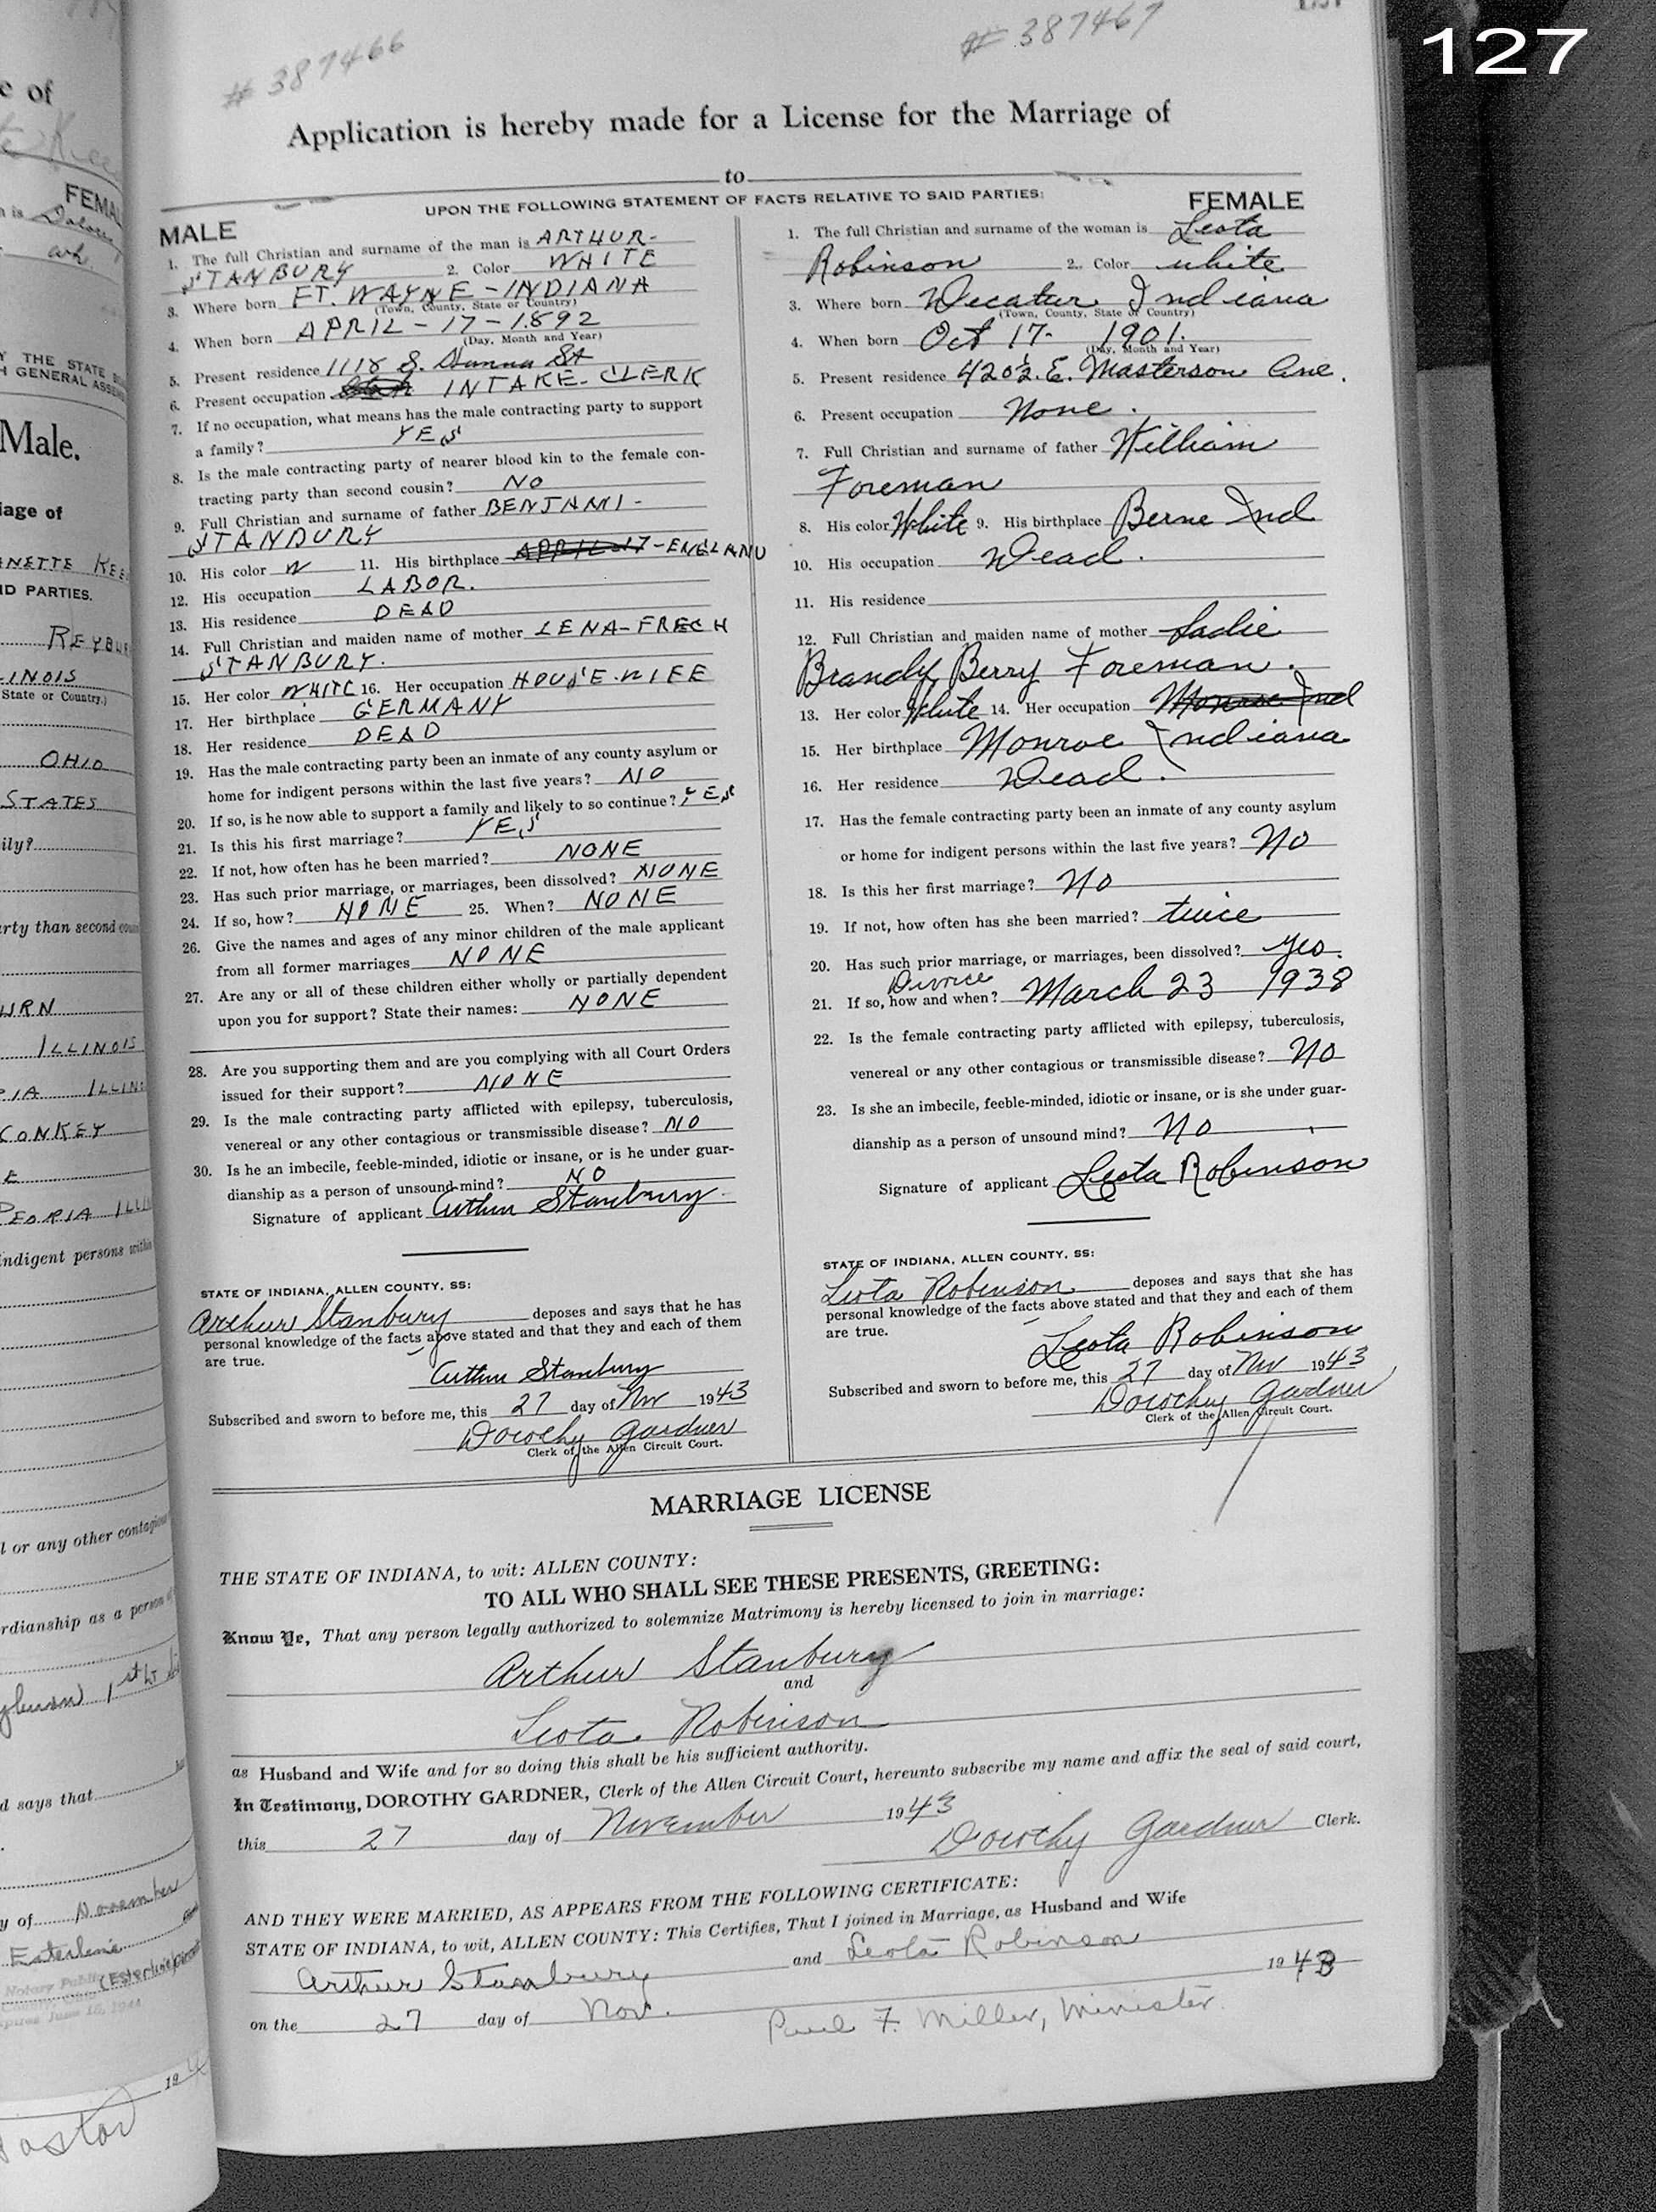 127
# 387466
# 387467
Application is hereby made for a License for the Marriage of
to
UPON THE FOLLOWING STATEMENT OF FACTS RELATIVE TO SAID PARTIES:
MALE
1. The full Christian and surname of the man is ARTHUR-
STANBURY 2. Color WHITE
3. Where born FT. WAYNE-INDIANA
(Town, County, State or Country)
4. When born APRIL-17-1892
(Day, Month and Year)
5. Present residence 1118 S. Hanna St
6. Present occupation INTAKE-CLERK
7. If no occupation, what means has the male contracting party to support
a family? YES
8. Is the male contracting party of nearer blood kin to the female con-
tracting party than second cousin? NO
9. Full Christian and surname of father BENJAMI-
STANBURY
10. His color W 11. His birthplace APRIL-17-ENGLAND
12. His occupation LABOR.
13. His residence DEAD
14. Full Christian and maiden name of mother LENA-FRECH
STANBURY.
15. Her color WHITE 16. Her occupation HOUSE-WIFE
17. Her birthplace GERMANY
18. Her residence DEAD
19. Has the male contracting party been an inmate of any county asylum or
home for indigent persons within the last five years? NO
20. If so, is he now able to support a family and likely to so continue? YES
21. Is this his first marriage? YES
22. If not, how often has he been married? NONE
23. Has such prior marriage, or marriages, been dissolved? NONE
24. If so, how? NONE 25. When? NONE
26. Give the names and ages of any minor children of the male applicant
from all former marriages NONE
27. Are any or all of these children either wholly or partially dependent
upon you for support? State their names: NONE
28. Are you supporting them and are you complying with all Court Orders
issued for their support? NONE
29. Is the male contracting party afflicted with epilepsy, tuberculosis,
venereal or any other contagious or transmissible disease? NO
30. Is he an imbecile, feeble-minded, idiotic or insane, or is he under guar-
dianship as a person of unsound mind? NO
Signature of applicant Arthur Stanbury
STATE OF INDIANA, ALLEN COUNTY, SS:
Arthur Stanbury deposes and says that he has
personal knowledge of the facts above stated and that they and each of them
are true.
Arthur Stanbury
Subscribed and sworn to before me, this 27 day of Nov 1943
Dorothy Gardner
Clerk of the Allen Circuit Court.
FEMALE
1. The full Christian and surname of the woman is Leota
Robinson 2. Color white
3. Where born Decatur Indiana
(Town, County, State or Country)
4. When born Oct 17- 1901.
(Day, Month and Year)
5. Present residence 420½ E. Masterson Ave.
6. Present occupation None.
7. Full Christian and surname of father William
Foreman
8. His color White 9. His birthplace Berne Ind
10. His occupation Dead.
11. His residence
12. Full Christian and maiden name of mother Sadie
Brandy Berry Foreman.
13. Her color White 14. Her occupation Monroe Ind
15. Her birthplace Monroe Indiana
16. Her residence Dead.
17. Has the female contracting party been an inmate of any county asylum
or home for indigent persons within the last five years? No
18. Is this her first marriage? No
19. If not, how often has she been married? twice
20. Has such prior marriage, or marriages, been dissolved? yes.
Divorce
21. If so, how and when? March 23 1938
22. Is the female contracting party afflicted with epilepsy, tuberculosis,
venereal or any other contagious or transmissible disease? No
23. Is she an imbecile, feeble-minded, idiotic or insane, or is she under guar-
dianship as a person of unsound mind? No
Signature of applicant Leota Robinson
STATE OF INDIANA, ALLEN COUNTY, SS:
Leota Robinson deposes and says that she has
personal knowledge of the facts above stated and that they and each of them
are true.
Leota Robinson
Subscribed and sworn to before me, this 27 day of Nov 1943
Dorothy Gardner
Clerk of the Allen Circuit Court.
MARRIAGE LICENSE
THE STATE OF INDIANA, to wit: ALLEN COUNTY:
TO ALL WHO SHALL SEE THESE PRESENTS, GREETING:
Know Ye, That any person legally authorized to solemnize Matrimony is hereby licensed to join in marriage:
Arthur Stanbury
and
Leota Robinson
as Husband and Wife and for so doing this shall be his sufficient authority.
In Testimony, DOROTHY GARDNER, Clerk of the Allen Circuit Court, hereunto subscribe my name and affix the seal of said court,
this 27 day of November 1943
Dorothy Gardner Clerk.
AND THEY WERE MARRIED, AS APPEARS FROM THE FOLLOWING CERTIFICATE:
STATE OF INDIANA, to wit, ALLEN COUNTY: This Certifies, That I joined in Marriage, as Husband and Wife
Arthur Stanbury and Leota Robinson
on the 27 day of Nov. 1943
Paul F. Miller, Minister